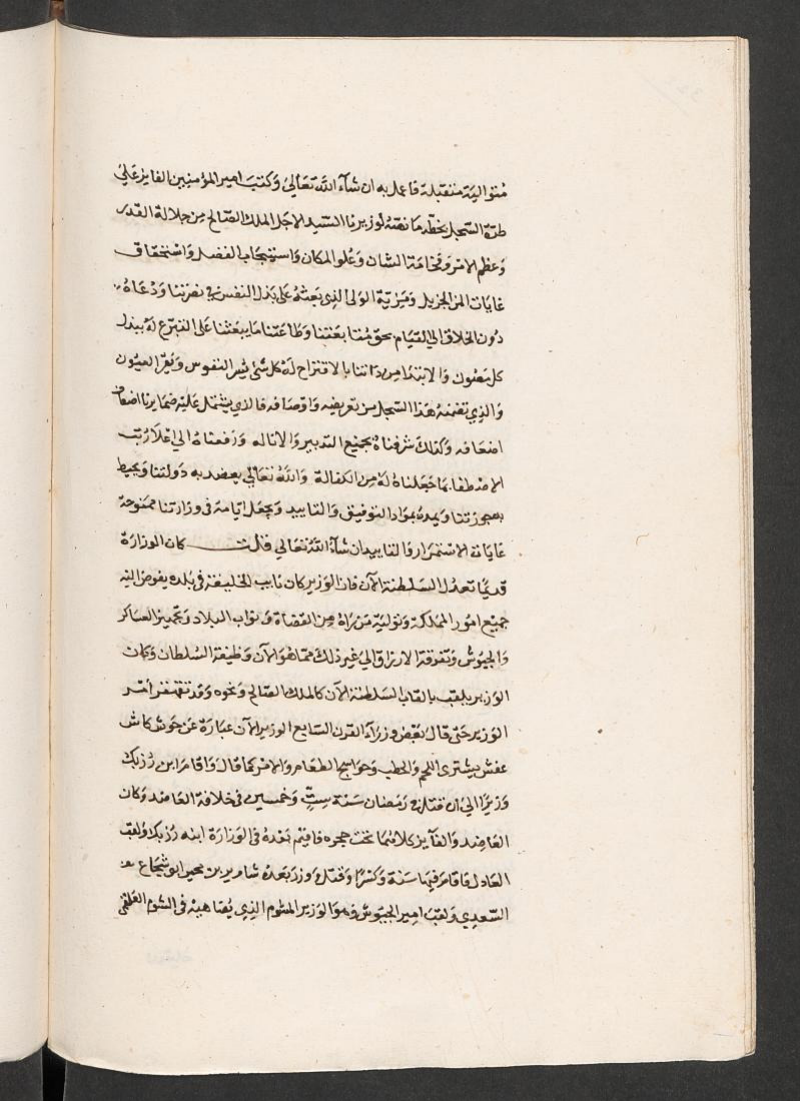 متوالية متقبلة فاعمل به ان شآء الله تعالى وكتب امير المؤمنين الفايز على
طرة السجل بخطه ما نصه لوزيرنا السيد الاجل الملك الصالح من جلالة القدر
وعظم الامر وفخامة الشان وعلو المكان واستيجاب الفضل واستحقاق
غايات المن الجزيل ومزية الولى الذى بعثه على بذل النفس فى نصرتنا ودعاه
دون الخلائق الى القيام بحق متابعتنا وطاعتنا ما يبعثنا على التبرع له ببذل
كل مصون والابتدا من ذاتنا بالاقتراح له كل شئ يسر النفوس ويقر العيون
والذى تضمنه هذا السجل من تقريضه واوصافه فالذى يشتمل عليه ضمايرنا اضعاف
اضعافه وكذلك شرفناه بجميع التدبير والاناله ورفعناه الى اعلا رتب
الاصطفا بما جعلناه له من الكفالة والله تعالى يعضد به دولتنا ويحيط
به حوزتنا ويمده بمواد التوفيق والتاييد ويجعل ايامه فى وزارتنا ممنوحة
غايات الاستمرار والتاييد ان شآء الله تعالى قلت كان الوزارة
قديما تعدل السلطنة الآن فان الوزير كان نايب الخليفة فى بلده يفوض اليه
جميع امور المملكة وتولية من يراه من القضاة ونواب البلاد وتجهيز العساكر
والجيوش وتفرقة الارزاق الى غير ذلك مما هو الآن وظيفة السلطان وكان
الوزير يلقب بالقاب السلطنة الآن كالملك الصالح ونحوه وقد تقهقر امر
الوزير حتى قال بعض وزراء القرن السابع الوزير الآن عبارة عن حوش كاش
عفش يشترى اللحم والحطب وحوايج الطعام والامر كما قال واقام ابن رزيك
وزيرا الى ان قتل فى رمضان سنة ست وخمسين فى خلافة العاضد وكان
العاضد والفآيز كلاهما تحت حجره فاقيم بعده فى الوزارة ابنه رزيك ولقب
العادل فاقام فيها سنة وكسرا وقتل ووزر بعده شاور بن مجير ابو شجاع
السعدى ولقب امير الجيوش وهو الوزير المشوم الذى يضاهيه فى الشوم العلقمى